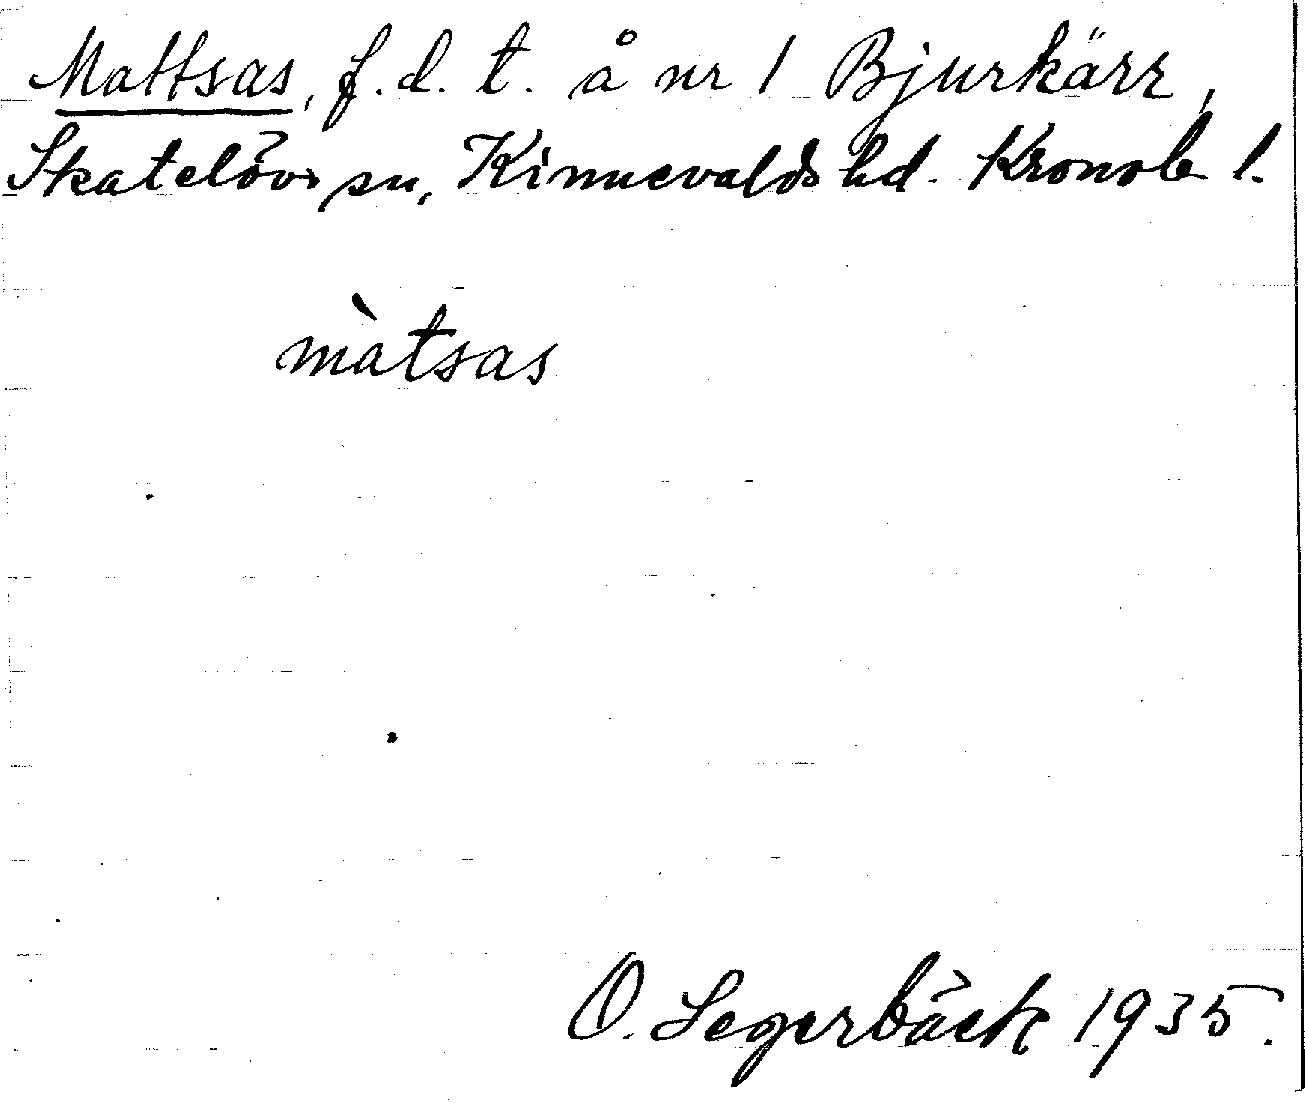 Mattsas, f.d. t. å nr 1 Bjurkärr,
Skatelövs sn, Kinnevalds hd. Kronob l.
màtsas
O. Segerbäck 1935.